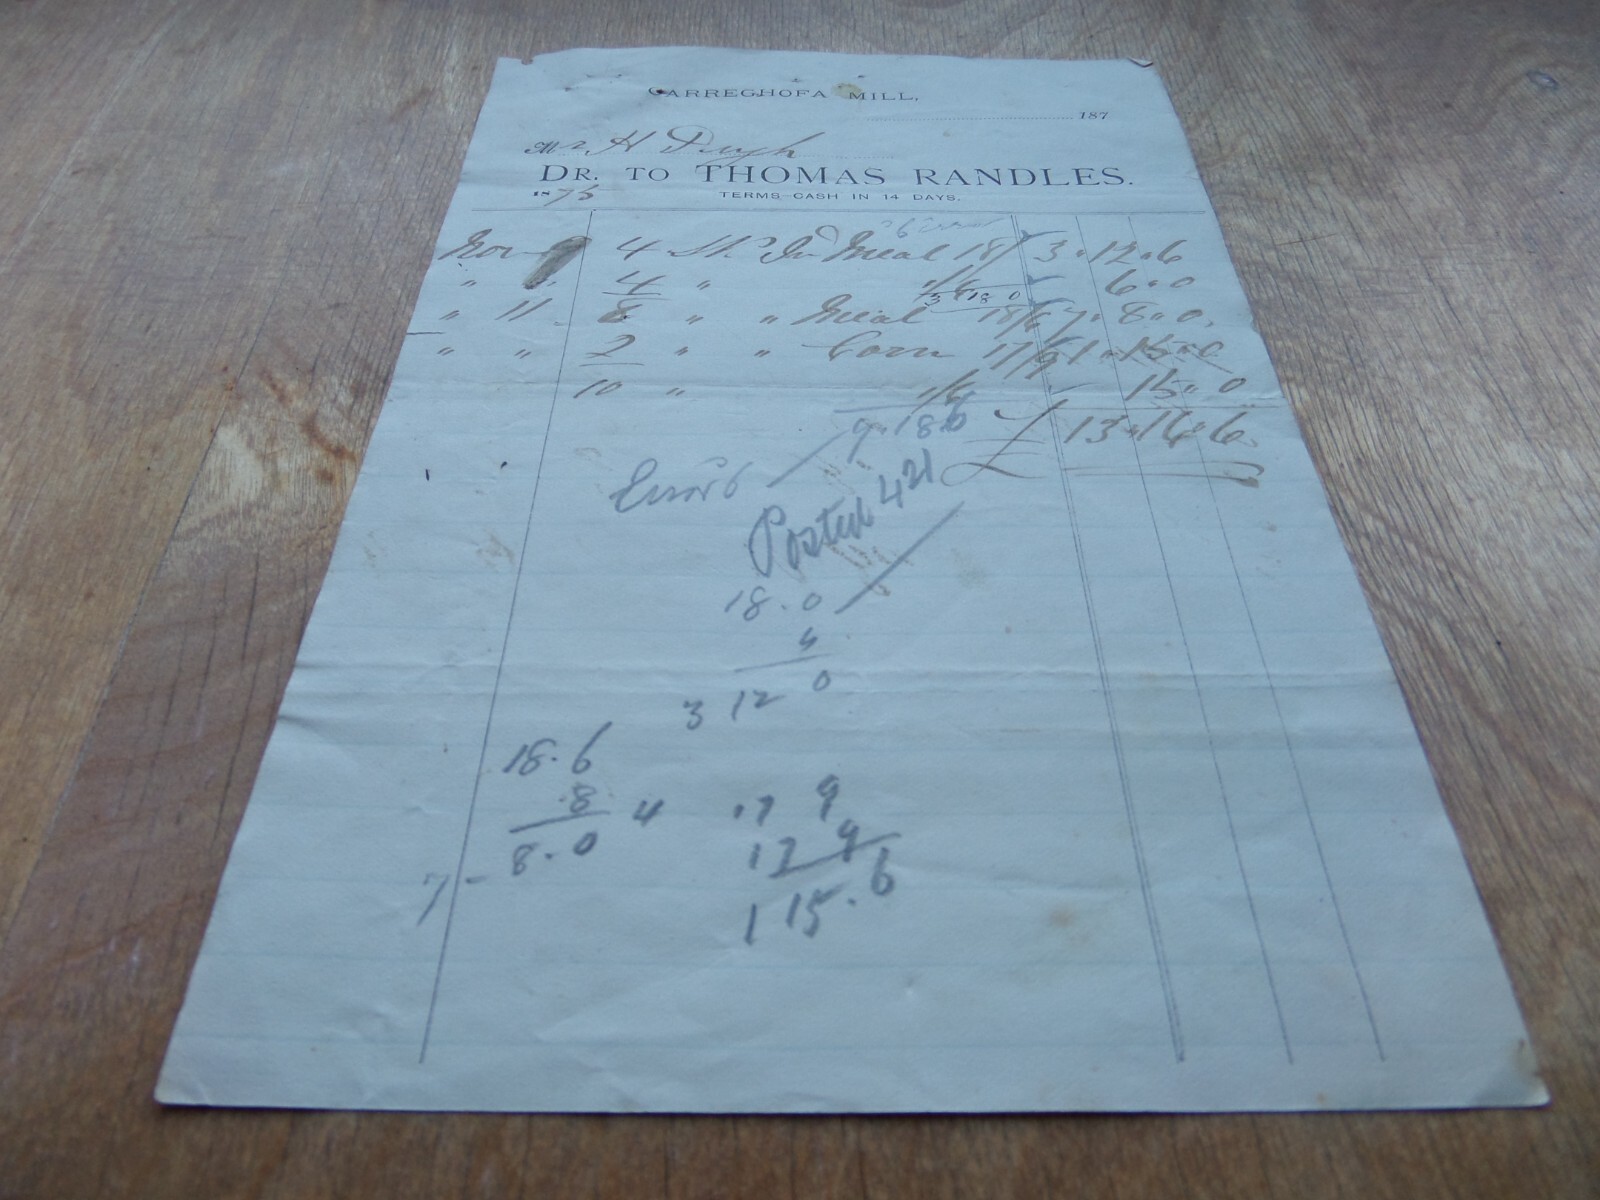 CARREGHOFA MILL,
187
Mr. H Pugh
DR. TO THOMAS RANDLES.
1875 TERMS CASH IN 14 DAYS.
6 Error
Nov 9 4 Sk In Meal 18/ 3.12.6
" " 4 " 1/6 6.0
3 18 0
" 11 8 " " Meal 18/6 7.8.0
" " 2 " " Corn 17/9 1.15.0
10 " 1/6 15.0
£ 13.16.6
9.18.6
Errors
Posted 421
18.0
4
3 12 0
18.6
8 4
7 - 8.0
17 9
17 9
1 15.6